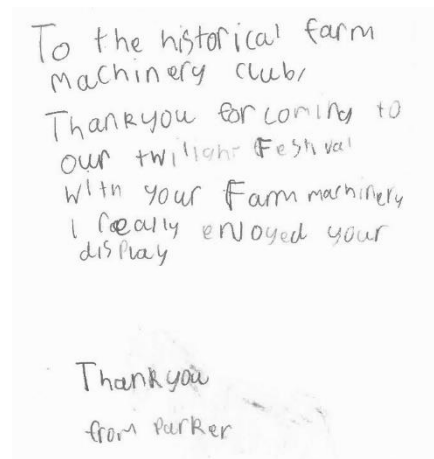 To the historical farm
machinery club,
Thankyou for coming to
our twilight Festival
with your Farm machinery
I really enoyed your
display
Thankyou
from Parker